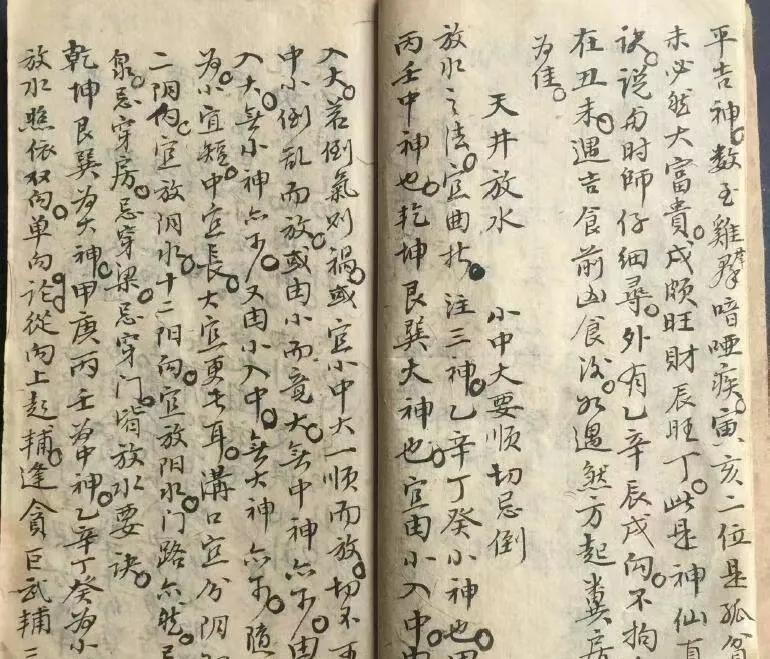 平吉神。数至雞群喑哑疾。寅亥二位是孤貧
未必然大富貴。戌頗旺財辰旺丁。此是神仙真
诀。说甪时師仔细尋。外有乙辛辰戌向。不拘
在丑未。遇吉食前凶食後。如遇煞方起糞房
为佳。
天井放水 小中大要順切忌倒
放水之法。宜曲折。注三神。乙辛丁癸小神也。甲
丙壬中神也。乾坤艮巽大神也。宜由小入中
入大。若倒氣则禍。或宜小中大一順而放。切不可
中小倒乱而放。或由小而竟大。無中神亦可。由
入大。無小神亦可。又由小入中。無大神亦可。随
为小宜短。中宜長。大宜更長耳。溝口宜分阴
二阴向宜放阴水。十二阳向宜放阳水。门路亦然。
泉。忌穿房。忌穿梁。忌穿门。皆放水要诀。
乾坤艮巽为大神。甲庚丙壬为中神。乙辛丁癸为小
放水照依双向单向論。從向上起輔。逢貪巨武輔三